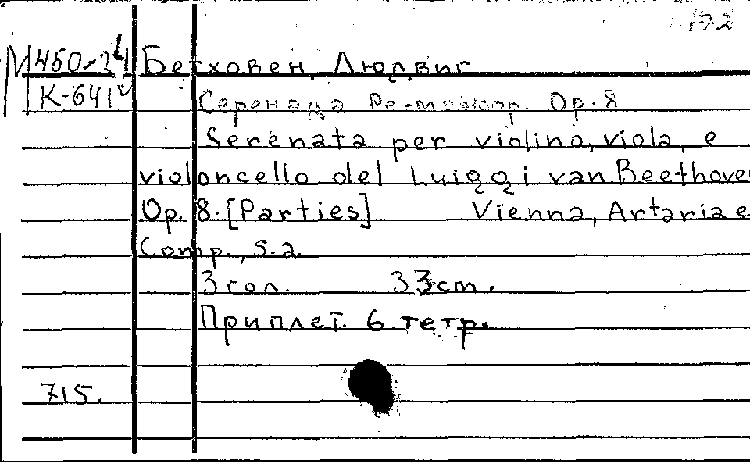 172
М450-34 Бетховен, Людвиг
К-641
Серенада Ре-мажор. Op. 8
Serenata per violino, viola, e
violoncello del Luiggi van Beethoven
Op. 8. [Parties] Vienna, Artaria e
Comp., s.a.
3 гол. 33 cm.
Приплет. 6 тетр.
715.